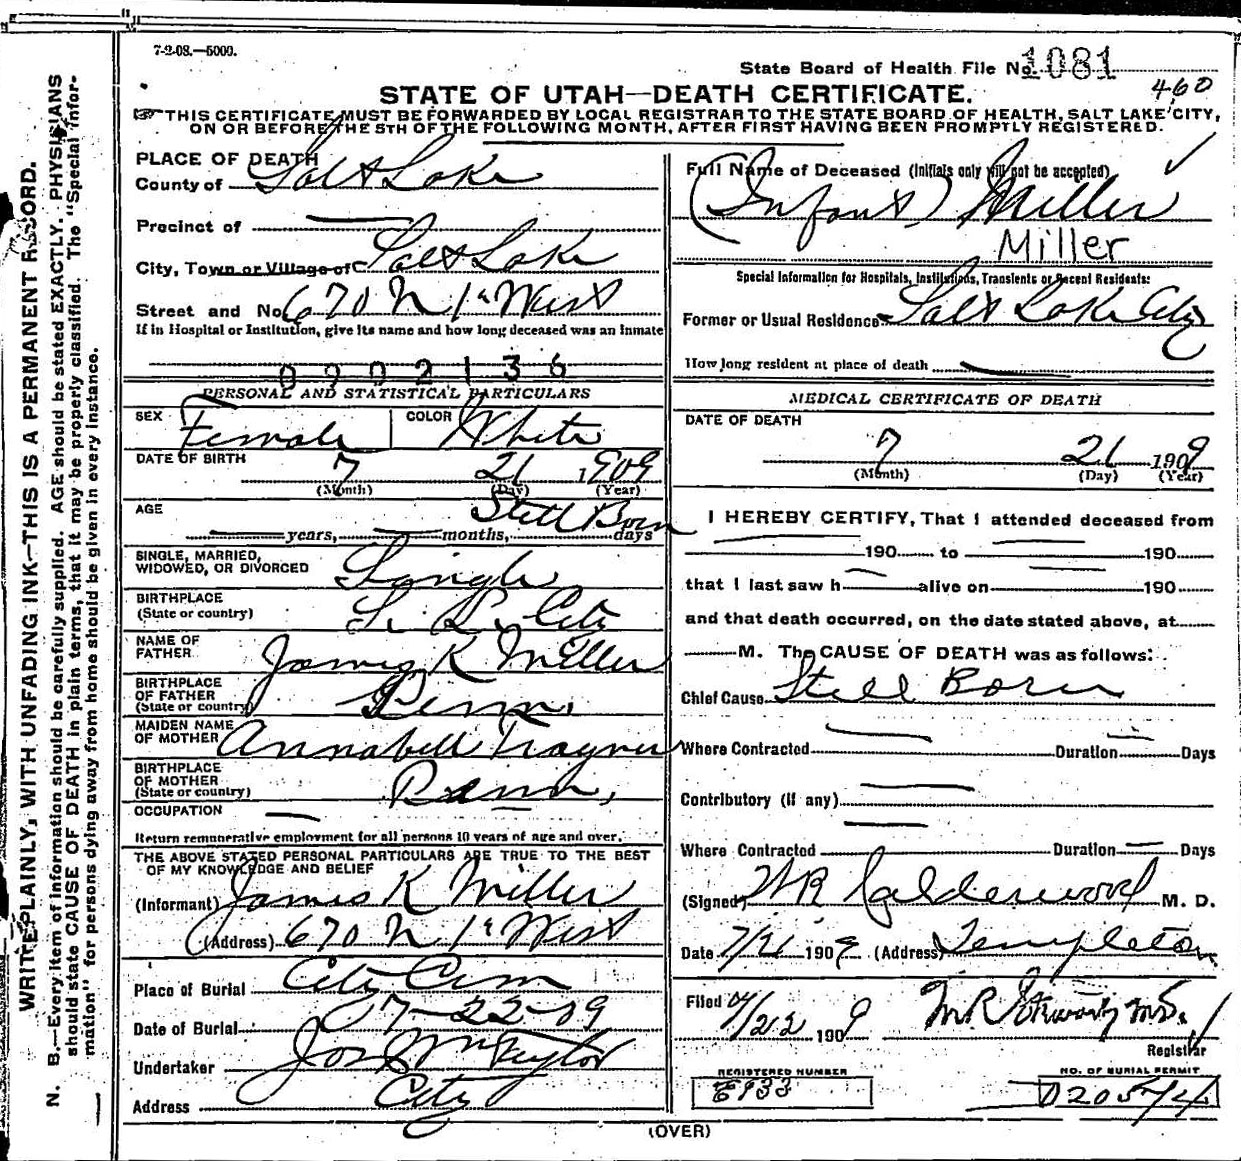 7-2-08.—5000.
State Board of Health File No. 1081
460
STATE OF UTAH—DEATH CERTIFICATE.
THIS CERTIFICATE MUST BE FORWARDED BY LOCAL REGISTRAR TO THE STATE BOARD OF HEALTH, SALT LAKE CITY,
ON OR BEFORE THE 5TH OF THE FOLLOWING MONTH, AFTER FIRST HAVING BEEN PROMPTLY REGISTERED.
WRITE PLAINLY, WITH UNFADING INK—THIS IS A PERMANENT RECORD.
N. B.—Every item of information should be carefully supplied. AGE should be stated EXACTLY. PHYSICIANS
should state CAUSE OF DEATH in plain terms, that it may be properly classified. The "Special Infor-
mation" for persons dying away from home should be given in every instance.
PLACE OF DEATH
County of Salt Lake
Precinct of —
City, Town or Village of Salt Lake
Street and No. 670 N 1st West
If in Hospital or Institution, give its name and how long deceased was an inmate
0902136
PERSONAL AND STATISTICAL PARTICULARS
SEX Female COLOR White
DATE OF BIRTH 7 21 1909
(Month) (Day) (Year)
AGE Still Born
years, months, days
SINGLE, MARRIED,
WIDOWED, OR DIVORCED Single
BIRTHPLACE
(State or country) S. L. City
NAME OF
FATHER James K Miller
BIRTHPLACE
OF FATHER
(State or country) Penn.
MAIDEN NAME
OF MOTHER Annabell Traynor
BIRTHPLACE
OF MOTHER
(State or country) Penn,
OCCUPATION —
Return remunerative employment for all persons 10 years of age and over.
THE ABOVE STATED PERSONAL PARTICULARS ARE TRUE TO THE BEST
OF MY KNOWLEDGE AND BELIEF
(Informant) James K Miller
(Address) 670 N 1st West
Place of Burial City Cem
Date of Burial 7-22-09
Undertaker Jos Wm Taylor
Address City
Full Name of Deceased (Initials only will not be accepted)
(Infant) Miller
Miller
Special Information for Hospitals, Institutions, Transients or Recent Residents:
Former or Usual Residence Salt Lake City
How long resident at place of death —
MEDICAL CERTIFICATE OF DEATH
DATE OF DEATH
7 21 1909
(Month) (Day) (Year)
I HEREBY CERTIFY, That I attended deceased from
190 to 190
that I last saw h alive on 190
and that death occurred, on the date stated above, at
M. The CAUSE OF DEATH was as follows:
Chief Cause Still Born
Where Contracted — Duration — Days
Contributory (if any) —
Where Contracted — Duration — Days
(Signed) W R Calderwood M. D.
Date 7/21 1909 (Address) Templeton
Filed 7/22 1909
Registrar
REGISTERED NUMBER
E933
NO. OF BURIAL PERMIT
D20574
(OVER)